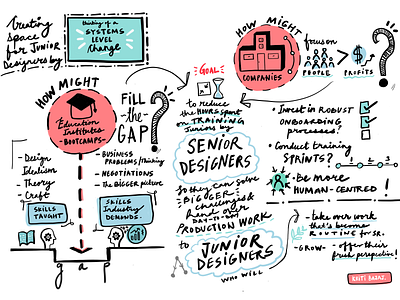 Creating
space
for JUNIOR
Designers by
thinking of a
SYSTEMS
LEVEL
Change
HOW MIGHT
Education
Institutes
- BOOTCAMPS -
Fill
-the-
GAP?
- Design
Idealism
- Theory
- Craft
- BUSINESS
PROBLEMS/framing
- NEGOTIATIONS
- The BIGGER picture
SKILLS
TAUGHT
SKILLS
Industry
DEMANDS.
g a p
GOAL
to reduce
the HOURS spent
on TRAINING
Juniors by
SENIOR
DESIGNERS
So they can solve
BIGGER
challenges &
Hand over
DAY-TO-DAY
PRODUCTION WORK
to
JUNIOR
DESIGNERS
WHO WILL
HOW MIGHT
COMPANIES
focus on
PEOPLE > PROFITS ?
• Invest in ROBUST
ONBOARDING
processes!
• Conduct training
SPRINTS?
1 2 3
• Be more
HUMAN-CENTRED!
- take over work
that's become
ROUTINE for SR.
- GROW - offer their
fresh perspective!
KRITI BAJAJ.